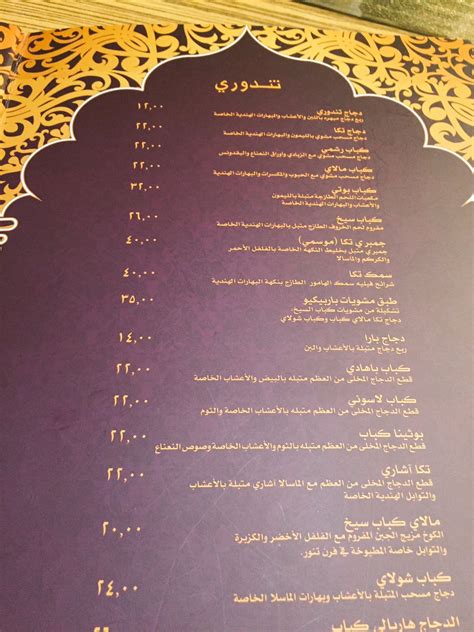 تندوري
دجاج تندوري ١٢,٠٠
ربع دجاج مبهره باللبن والأعشاب والبهارات الهندية الخاصة
دجاج تكا ٢٢,٠٠
دجاج مسحب مشوي بالليمون والبهارات الهندية الخاصة
كباب رشمي ٢٢,٠٠
دجاج مسحب مشوي مع الزبادي وأوراق النعناع والبقدونس
كباب مالاي ٢٢,٠٠
دجاج مسحب مشوي مع الحبوب والمكسرات والبهارات الهندية
كباب بوتي ٣٢,٠٠
مكعبات اللحم الطازجة متبلة بالليمون
والأعشاب والبهارات الهندية
كباب سيخ ٢٦,٠٠
مفروم لحم الخروف الطازج متبل بالبهارات الهندية الخاصة
جمبري تكا (موسمي) ٤٠,٠٠
جمبري متبل بخليط النكهه الخاصة بالفلفل الأحمر
والكركم والماسالا
سمك تكا ٤٠,٠٠
شرائح فيليه سمك الهامور الطازج بنكهة البهارات الهندية
طبق مشويات باربيكيو ٣٥,٠٠
تشكيلة من مشويات كباب السيخ,
دجاج تكا مالاي كباب وكباب شولاي
دجاج بارا ١٤,٠٠
ربع دجاج متبلة بالأعشاب والبن
كباب باهادي ٢٢,٠٠
قطع الدجاج المخلى من العظم متبله بالبيض والأعشاب الخاصة
كباب لاسوني ٢٢,٠٠
قطع الدجاج المخلى من العظم متبله بالأعشاب الخاصة والثوم
بوثينا كباب ٢٢,٠٠
قطع الدجاج المخلى من العظم متبله بالثوم والأعشاب الخاصة وصوص النعناع
تكا آشاري ٢٢,٠٠
قطع الدجاج المخلى من العظم مع الماسالا آشاري متبلة بالأعشاب
والتوابل الهندية الخاصة
مالاي كباب سيخ ٢٠,٠٠
الكوخ مزيج الجبن المفروم مع الفلفل الأخضر والكزبرة
والتوابل خاصة المطبوخة في فرن تنور.
كباب شولاي ٢٤,٠٠
دجاج مسحب المتبلة بالأعشاب وبهارات الماسلا الخاصة
الدجاج هاريالي كباب